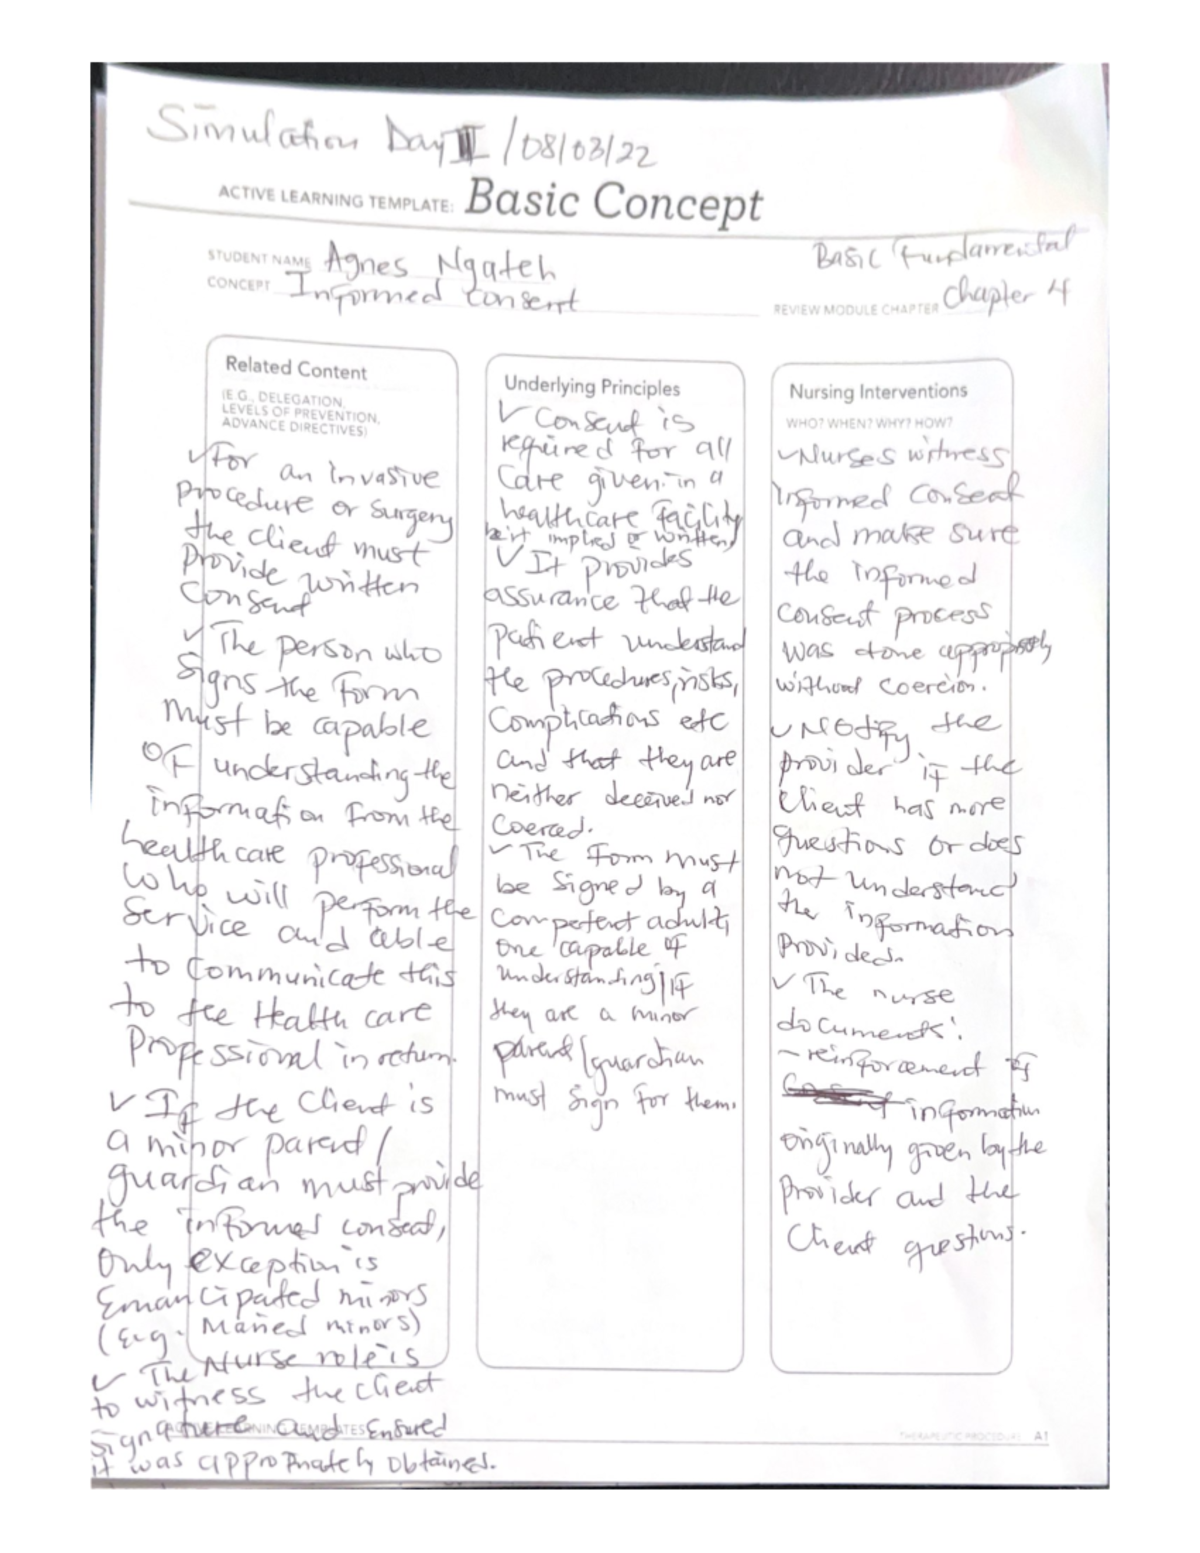 Simulation Day II /08/03/22
ACTIVE LEARNING TEMPLATE: Basic Concept
STUDENT NAME Agnes Ngateh
CONCEPT Informed consent
Basic Fundamental
REVIEW MODULE CHAPTER Chapter 4
Related Content
(E.G., DELEGATION,
LEVELS OF PREVENTION,
ADVANCE DIRECTIVES)
✓For an invasive
procedure or surgery
the client must
provide written
Consent
✓ The person who
signs the form
must be capable
of understanding the
information from the
healthcare professional
who will perform the
service and able
to communicate this
to the Health care
Professional in return.
✓ If the client is
a minor parent/
guardian must provide
the informed consent,
Only exception is
Emancipated minors
(E.g. Maried minors)
✓ The Nurse role is
to witness the client
signature and Ensured
it was appropriately obtained.
Underlying Principles
✓ Consent is
required for all
Care given in a
healthcare facility
be it implied or written
✓ It provides
assurance that the
patient understand
the procedures, risks,
Complications etc
and that they are
neither deceived nor
Coerced.
✓ The Form must
be signed by a
Competent adult,
one capable of
understanding/If
they are a minor
parent/guardian
must sign for them.
Nursing Interventions
WHO? WHEN? WHY? HOW?
✓Nurses witness
Informed Consent
and make sure
the informed
consent process
was done
without coercion.
✓ Notify the
provider if the
Client has more
questions or does
not understand
the information
Provided.
✓ The nurse
documents:
- reinforcement of
information
originally given by the
Provider and the
Client questions.
ACTIVE LEARNING TEMPLATES
THERAPEUTIC PROCEDURE A1